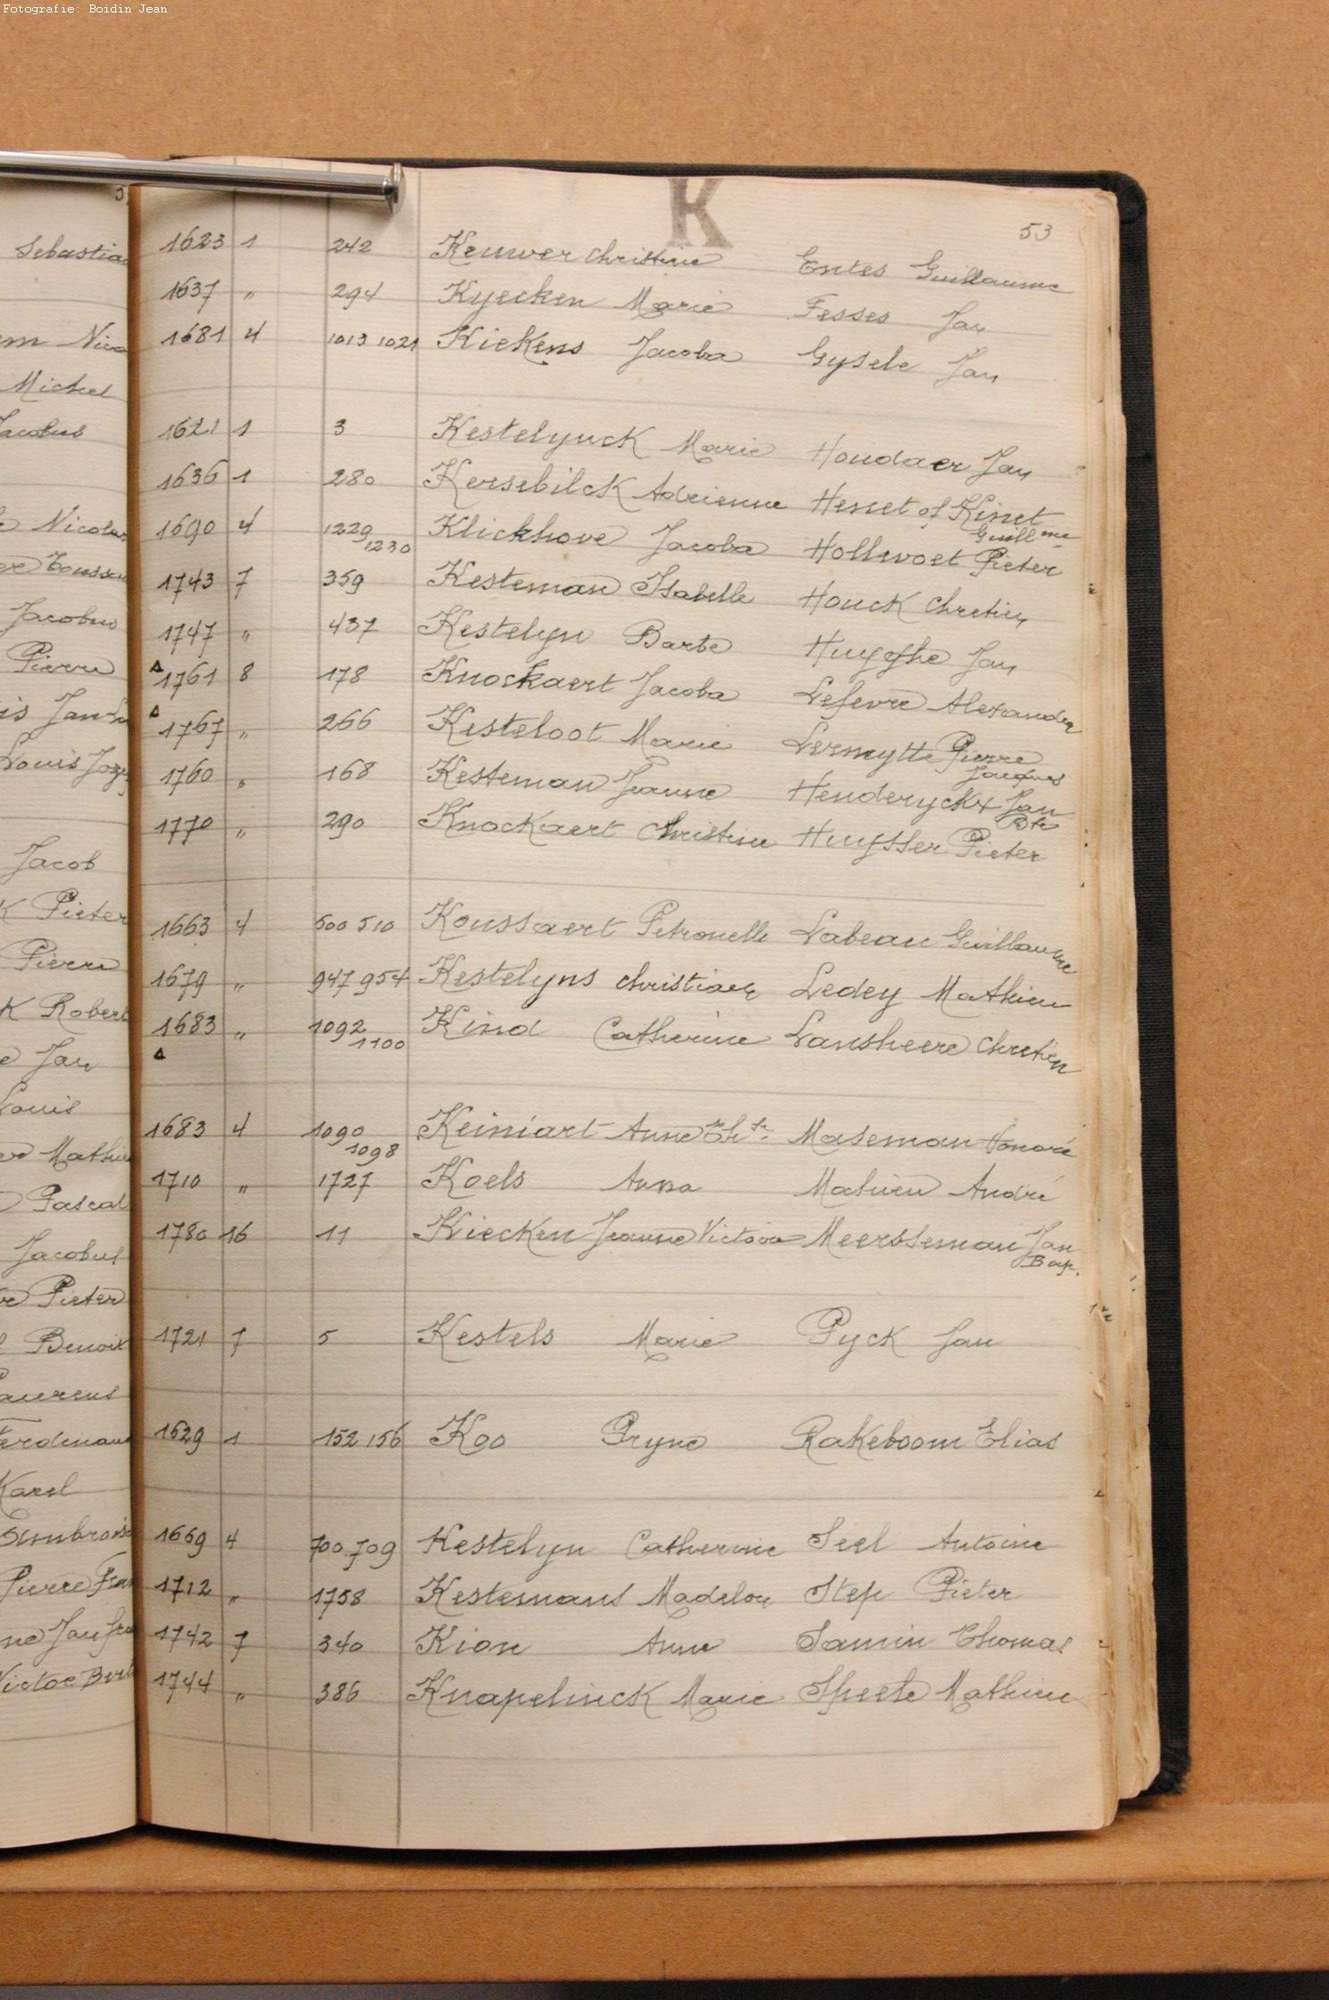 Fotografie: Boidin Jean
K
53
1623 1 242 Keuwer Christine Entes Guillaume
1637 " 294 Kyecken Marie Fesses Jan
1681 4 1013 1021 Kiekens Jacoba Gysele Jan
1621 1 3 Kestelynck Marie Houdaer Jan
1636 1 280 Kersebilck Adrienne Hennet of Kinet
Guillme
1690 4 1229 1230 Klickhove Jacoba Hollevoet Pieter
1743 7 359 Kesteman Isabelle Houck Chretien
1747 " 437 Kestelyn Barbe Huyghe Jan
1761 8 178 Knockaert Jacoba Lefevre Alexander
1767 " 266 Kesteloot Marie Lermytte Pierre
Jacques
1760 " 168 Kesteman Jeanne Henderyckx Jan
Bte
1770 " 290 Knockaert Christine Huysser Pieter
1663 4 500 510 Koussaert Petronelle Labeau Guillaume
1679 " 947 954 Kestelyns Christiaen Ledey Mathieu
1683 " 1092 1100 Kind Catherine Lansheere Chretien
1683 4 1090 1098 Keiniart Anne Maseman Honoré
1710 " 1727 Koels Anna Mahieu André
1780 16 11 Kiecken Jeanne Victoire Meersseman Jan
Bap.
1721 7 5 Kestels Marie Pyck Jan
1629 1 152 156 Koo Pryne Rakeboom Elias
1669 4 700 709 Kestelyn Catherine Seel Antoine
1712 " 1758 Kestemans Madelon Step Pieter
1742 7 340 Kion Anne Samin Thomas
1744 " 386 Knapelinck Marie Speele Mathieu